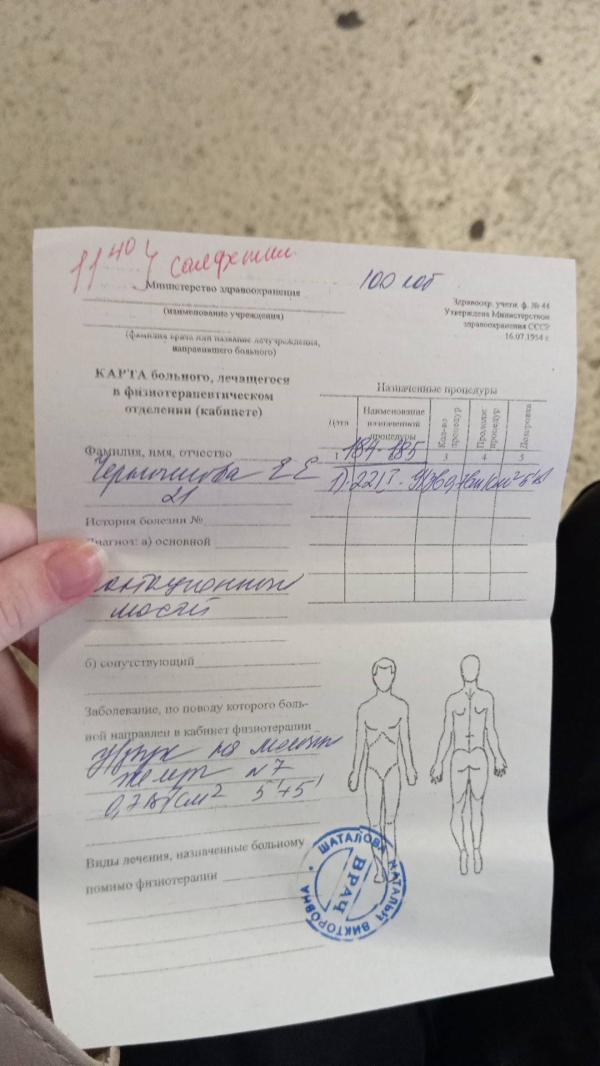 11 40
100 каб
Министерство здравоохранения
(наименование учреждения)
(фамилия врача или название лечучреждения,
направившего больного)
Здравоохр. учетн. ф. № 44
Утверждена Министерством
здравоохранения СССР
16.07.1954 г.
КАРТА больного, лечащегося
в физиотерапевтическом
отделении (кабинете)
Назначенные процедуры
Дата
Наименование назначенной процедуры
Кол-во процедур
Продолж. процедур
Дозировка
1 3 4 5
184-185
Фамилия, имя, отчество
Е Е
21
История болезни №
Диагноз: а) основной
б) сопутствующий
Заболевание, по поводу которого боль-
ной направлен в кабинет физиотерапии
на
N7
0,7 Вт/см² 5'+5'
Виды лечения, назначенные больному
помимо физиотерапии
ШАТАЛОВА НАТАЛЬЯ ВИКТОРОВНА
ВРАЧ